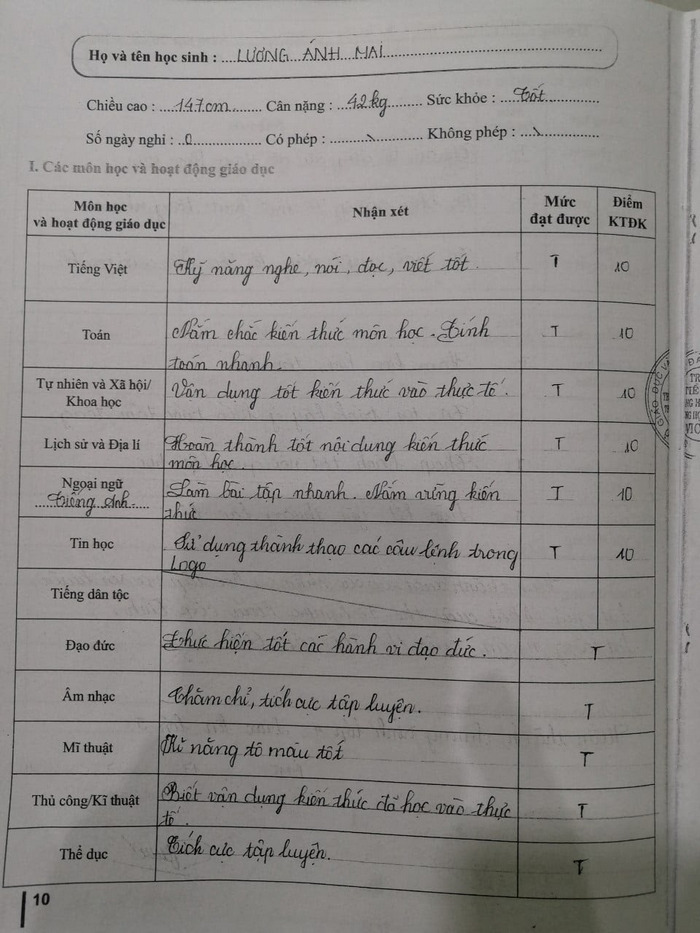 Họ và tên học sinh : LƯƠNG ÁNH MAI
Chiều cao : 147cm Cân nặng : 42kg Sức khỏe : Tốt
Số ngày nghỉ : 0 Có phép : \ Không phép : \
I. Các môn học và hoạt động giáo dục
Môn học và hoạt động giáo dục Nhận xét Mức đạt được Điểm KTĐK
Tiếng Việt Kỹ năng nghe, nói, đọc, viết tốt. T 10
Toán Nắm chắc kiến thức môn học. Tính T 10
toán nhanh.
Tự nhiên và Xã hội/ Khoa học Vận dụng tốt kiến thức vào thực tế. T 10
Lịch sử và Địa lí Hoàn thành tốt nội dung kiến thức T 10
môn học.
Ngoại ngữ Làm bài tập nhanh. Nắm vững kiến T 10
Tiếng Anh thức
Tin học Sử dụng thành thạo các câu lệnh trong T 10
Logo
Tiếng dân tộc
Đạo đức Thực hiện tốt các hành vi đạo đức. T
Âm nhạc Chăm chỉ, tích cực tập luyện. T
Mĩ thuật Kĩ năng tô màu tốt T
Thủ công/Kĩ thuật Biết vận dụng kiến thức đã học vào thực T
tế.
Thể dục Tích cực tập luyện. T
10